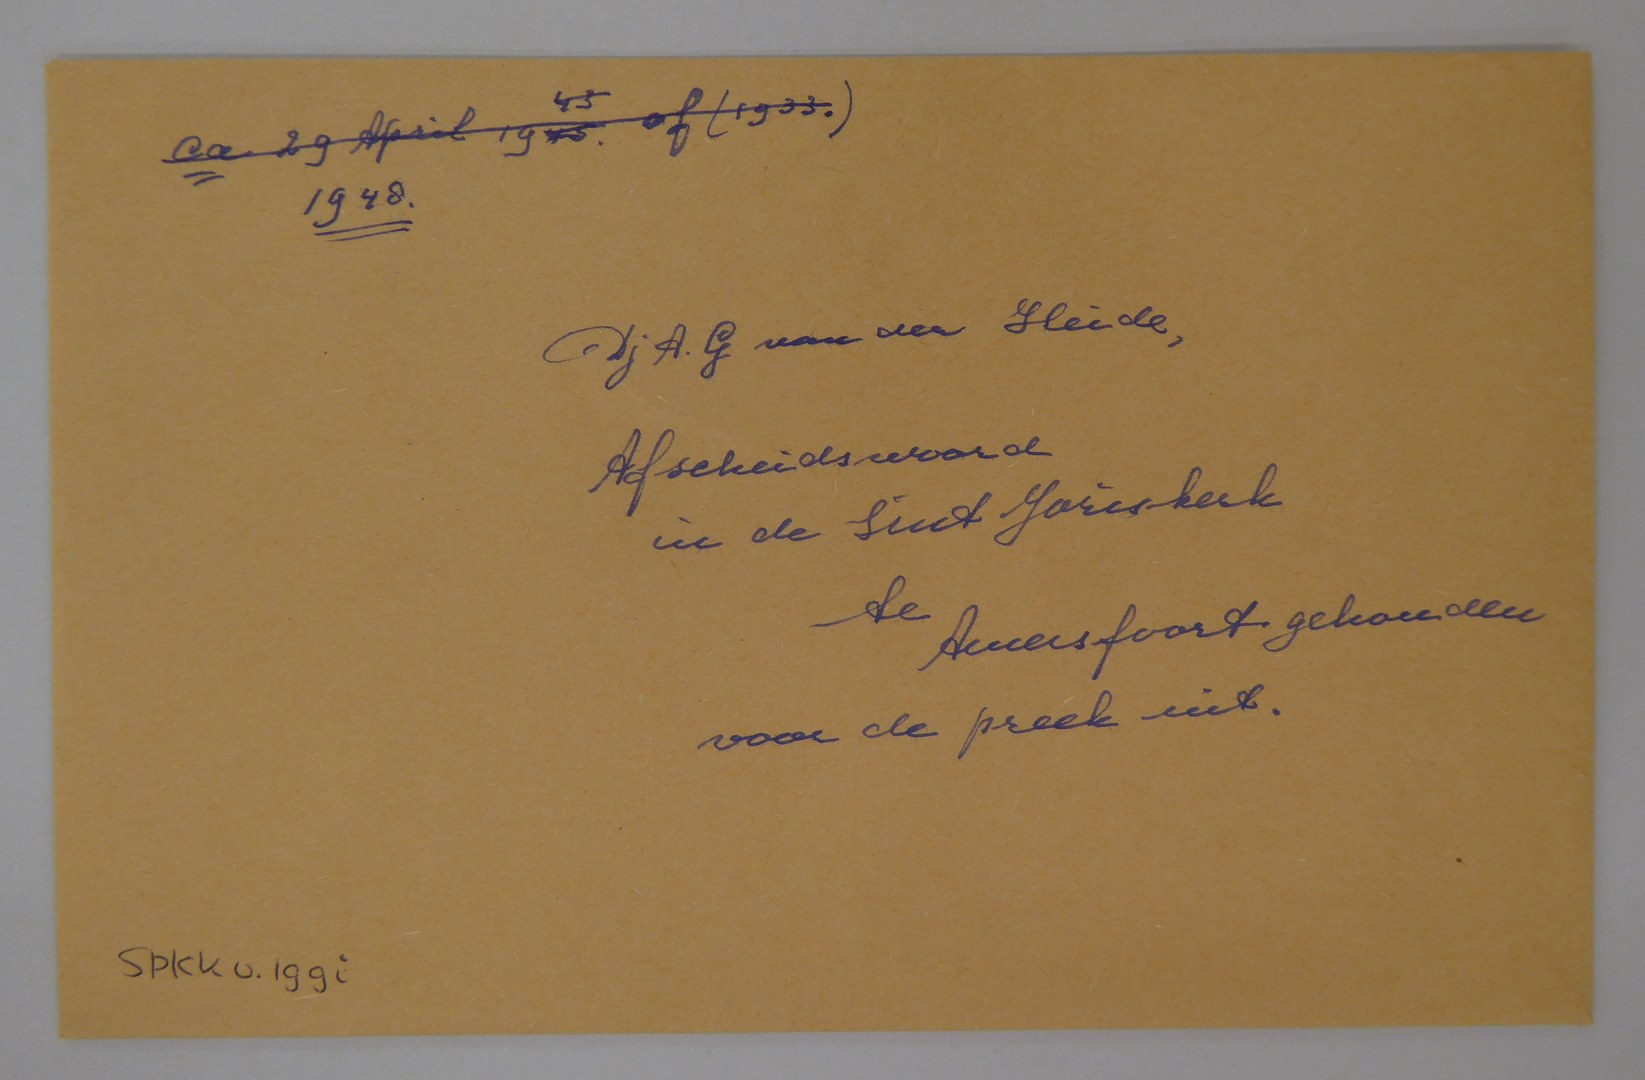 ca. 29 April 1945. of (1933.)
1948.
Ds A. G van der Heide,
Afscheidswoord
in de Sint Joriskerk
te
Amersfoort gehouden
voor de preek uit.
SPKK v. 199i